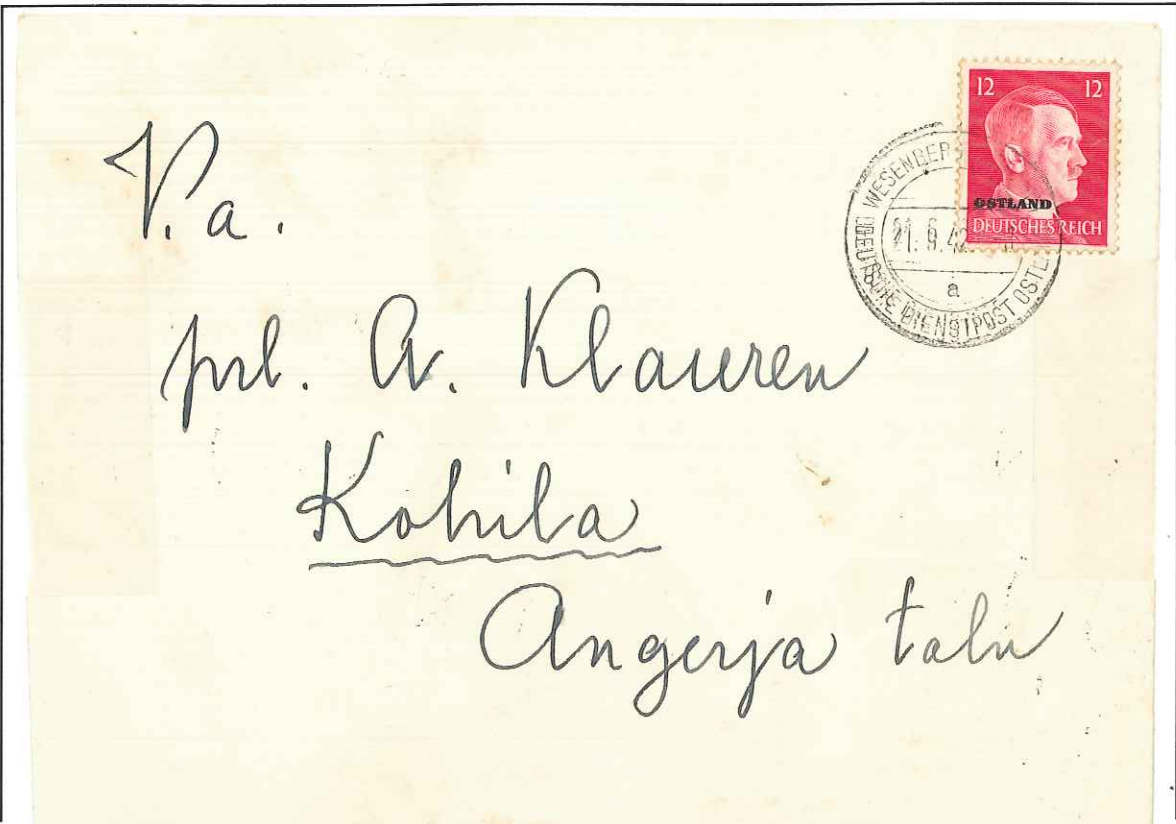 12 12
OSTLAND
DEUTSCHES REICH
WESENBER
a
DEUTSCHE DIENSTPOST OSTL
V. a.
prl. A. Klauren
Kohila
Angerja talu